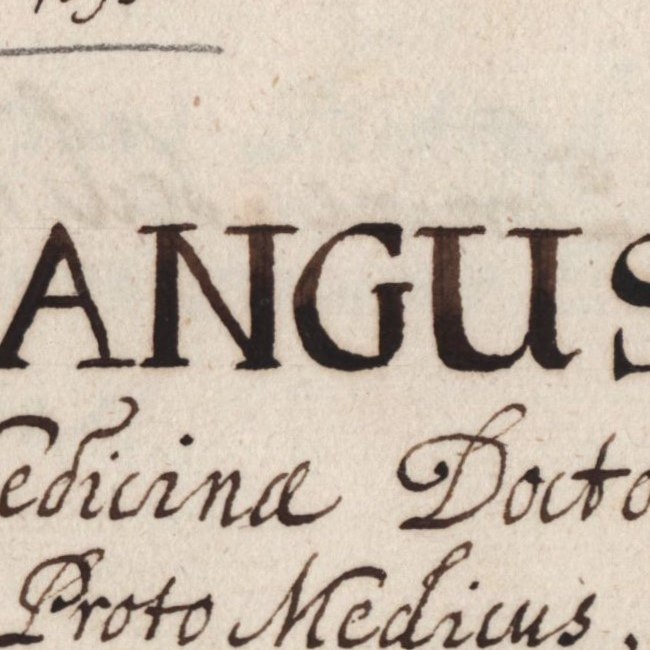 ANGUS
edicinæ Docto
Proto Medicus,